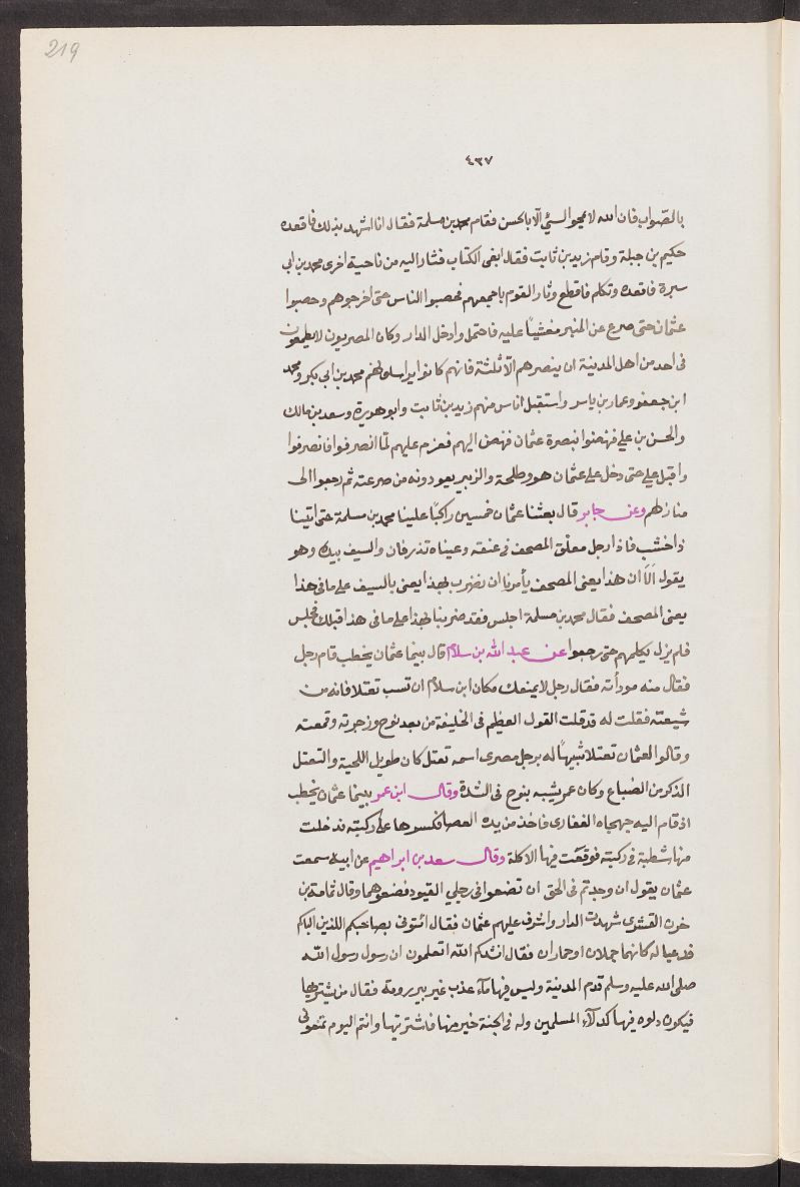 219
٤٣٧
بالصواب فان الله لا يمحو السيئ الا بالحسن فقام محمد بن مسلمة فقال انا اشهد بذلك فاقعده
حكيم بن جبلة وقام زيد بن ثابت فقال ابغى الكتاب فثار اليه من ناحية اخرى محمد بن ابى
سبرة فاقعده وتكلم فاقطع وثار القوم باجمعهم فحصبوا الناس حتى اخرجوهم وحصبوا
عثمان حتى صرع عن المنبر مغشيًا عليه فاحتمل وادخل الدار وكان المصريون لا يطمعون
فى احد من اهل المدينة ان ينصرهم الا ثلثة فانهم كانوا يراسلونهم محمد بن ابى بكر ومحمد
ابن جعفر وعمار بن ياسر واستقبل اناس منهم زيد بن ثابت وابو هريرة وسعد بن مالك
والحسن بن على فنهضوا بنصرة عثمان فنهض اليهم فعزم عليهم لما انصرفوا فانصرفوا
واقبل على حتى دخل على عثمان هو وطلحة والزبير يعودونه من صرعته ثم رجعوا الى
منازلهم وعن جابر قال بعثنا عثمان خمسين راكبًا علينا محمد بن مسلمة حتى اتينا
ذا خشب فاذا رجل معلق المصحف فى عنقه وعيناه تذرفان والسيف بيده وهو
يقول الا ان هذا يعنى المصحف يأمرنا ان نضرب بهذا يعنى بالسيف على ما فى هذا
يعنى المصحف فقال محمد بن مسلمة اجلس فقد ضربنا بهذا على ما فى هذا قبلك فجلس
فلم يزل يكلمهم حتى رجعوا عن عبد الله بن سلام قال بينما عثمان يخطب قام رجل
فقال منه مودأته فقال رجل لا يمنعك مكان ابن سلام ان تسب نعثلا فانه من
شيعته فقلت له قد قلت القول العظيم فى الخليفة من بعد نوح وزجرته وقمعته
وقالوا لعثمان نعثلا شبيهاً له برجل مصرى اسمه نعثل كان طويل اللحية والنعثل
الذكر من الضباع وكان عمر يشبه بنوح فى الشدة وقال ابن عمر بينما عثمان يخطب
اذ قام اليه جهجاه الغفارى فاخذ من يده العصا فكسرها على ركبته فدخلت
منها شظية فى ركبته فوقعت فيها الاكلة وقال سعد بن ابراهيم عن ابيه سمعت
عثمان يقول ان وجدتم فى الحق ان تضعوا فى رجلى القيود فضعوهما وقال ثمامة بن
حزن القشرى شهدت الدار واشرف عليهم عثمان فقال ائتونى بصاحبكم اللذين الباكم
فدعيا له كانهما جملان او حماران فقال انشدكم الله اتعلمون ان رسول رسول الله
صلى الله عليه وسلم قدم المدينة وليس فيها مآء عذب غير بير رومة فقال من يشتريها
فيكون دلوه فيها كدلآء المسلمين وله فى الجنة خير منها فاشتريتها وانتم اليوم تمنعونى